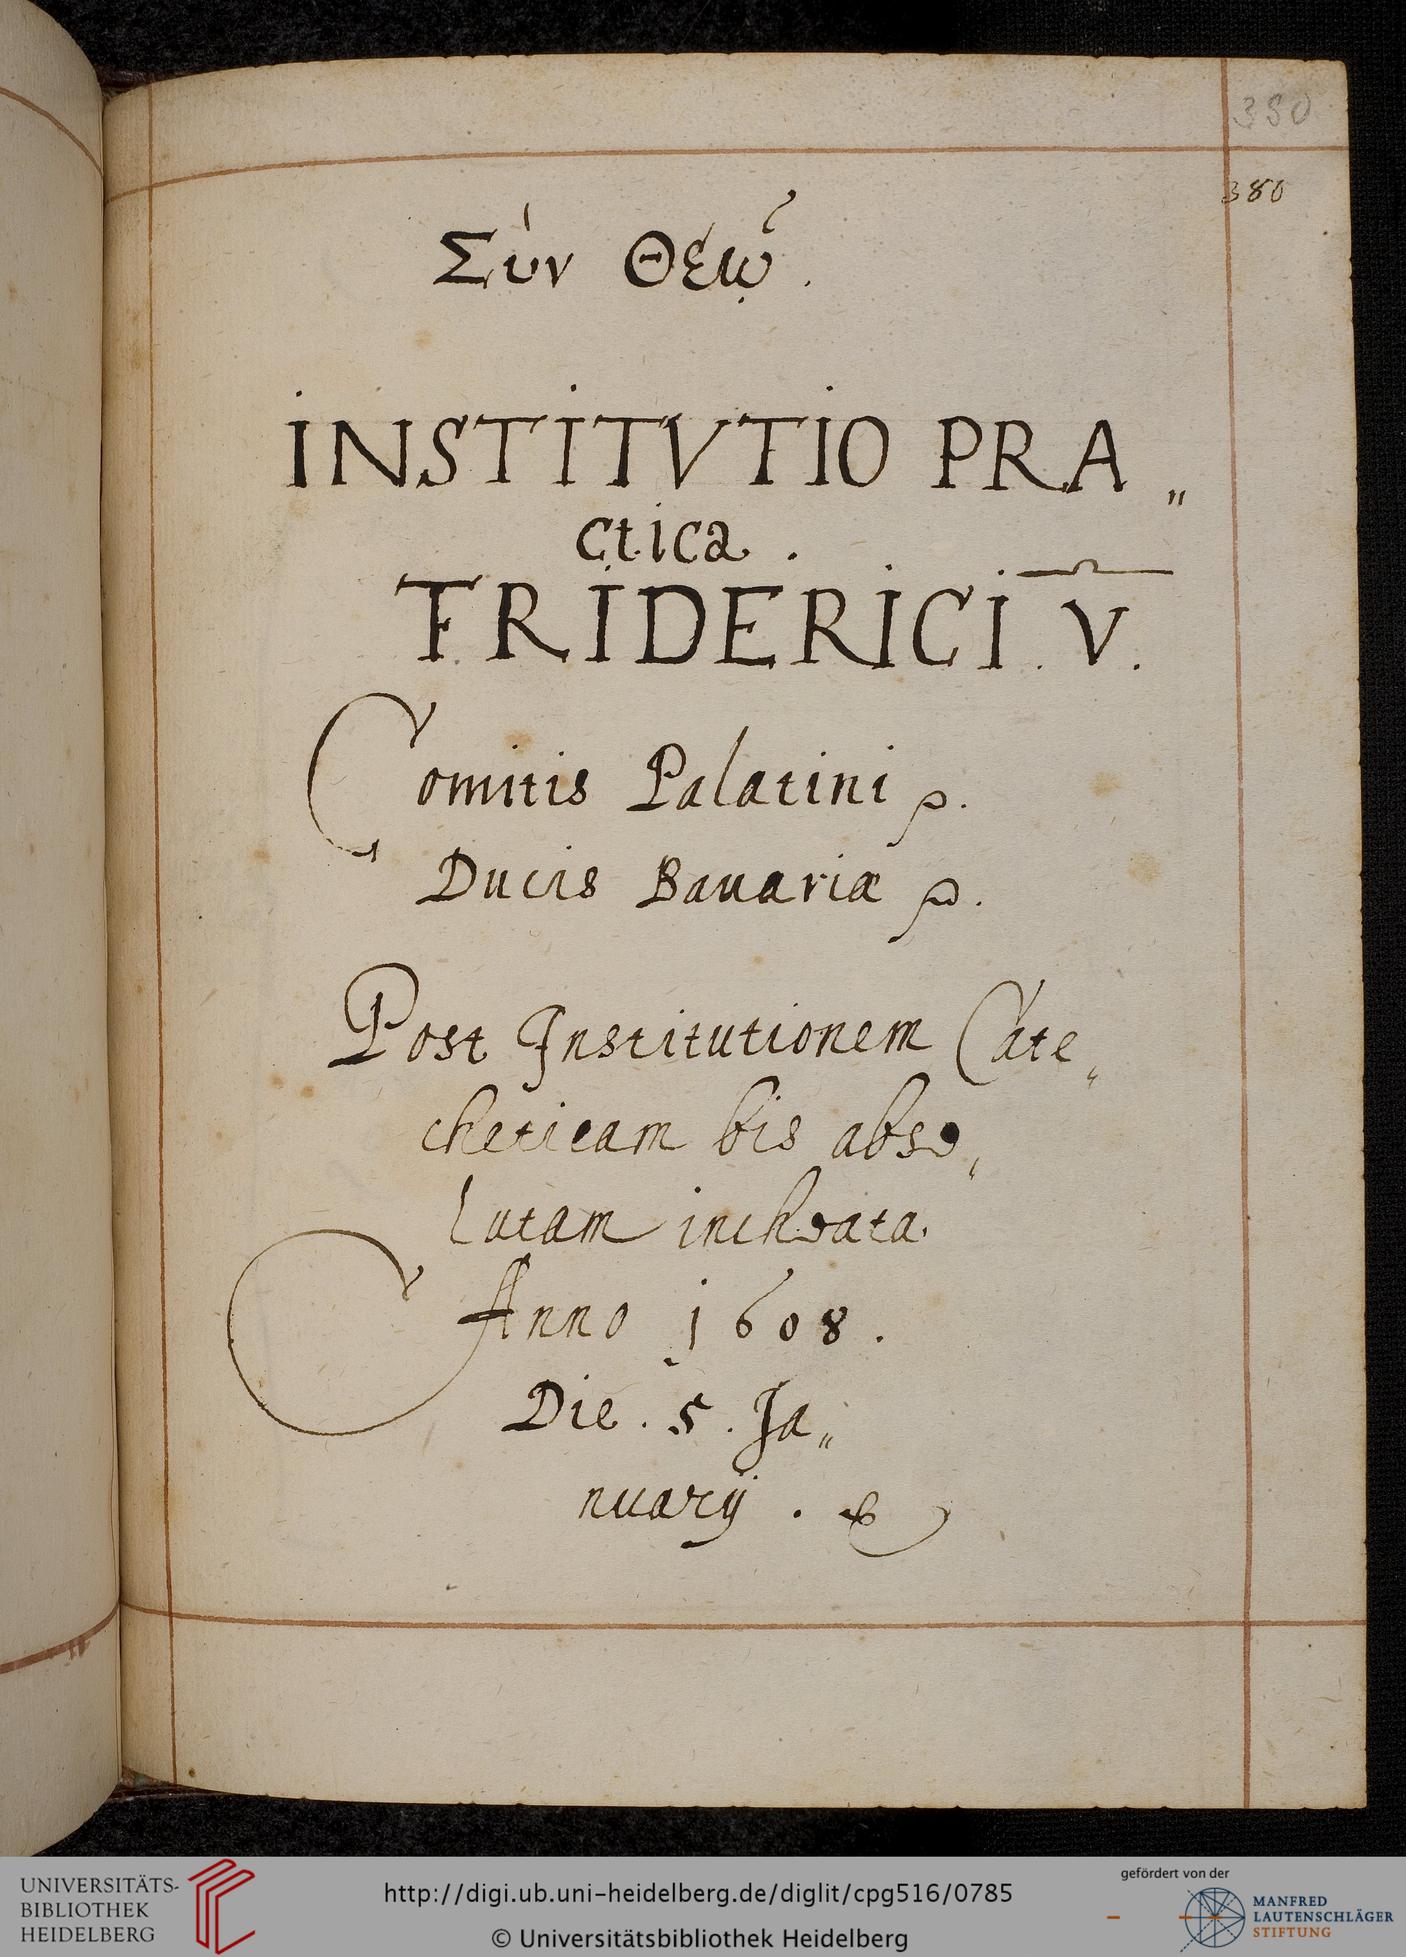 380
380
Σὺν Θεῷ.
INSTITVTIO PRA„
ctica.
FRIDERICI. V.
Comitis Palatini
Ducis Bauariæ
Post Institutionem Cate„
cheticam bis abso„
lutam inchoata
Anno 1608.
Die. 5. Ja„
nuarij.
UNIVERSITÄTS-
BIBLIOTHEK
HEIDELBERG
http://digi.ub.uni-heidelberg.de/diglit/cpg516/0785
© Universitätsbibliothek Heidelberg
gefördert von der
MANFRED
LAUTENSCHLÄGER
STIFTUNG